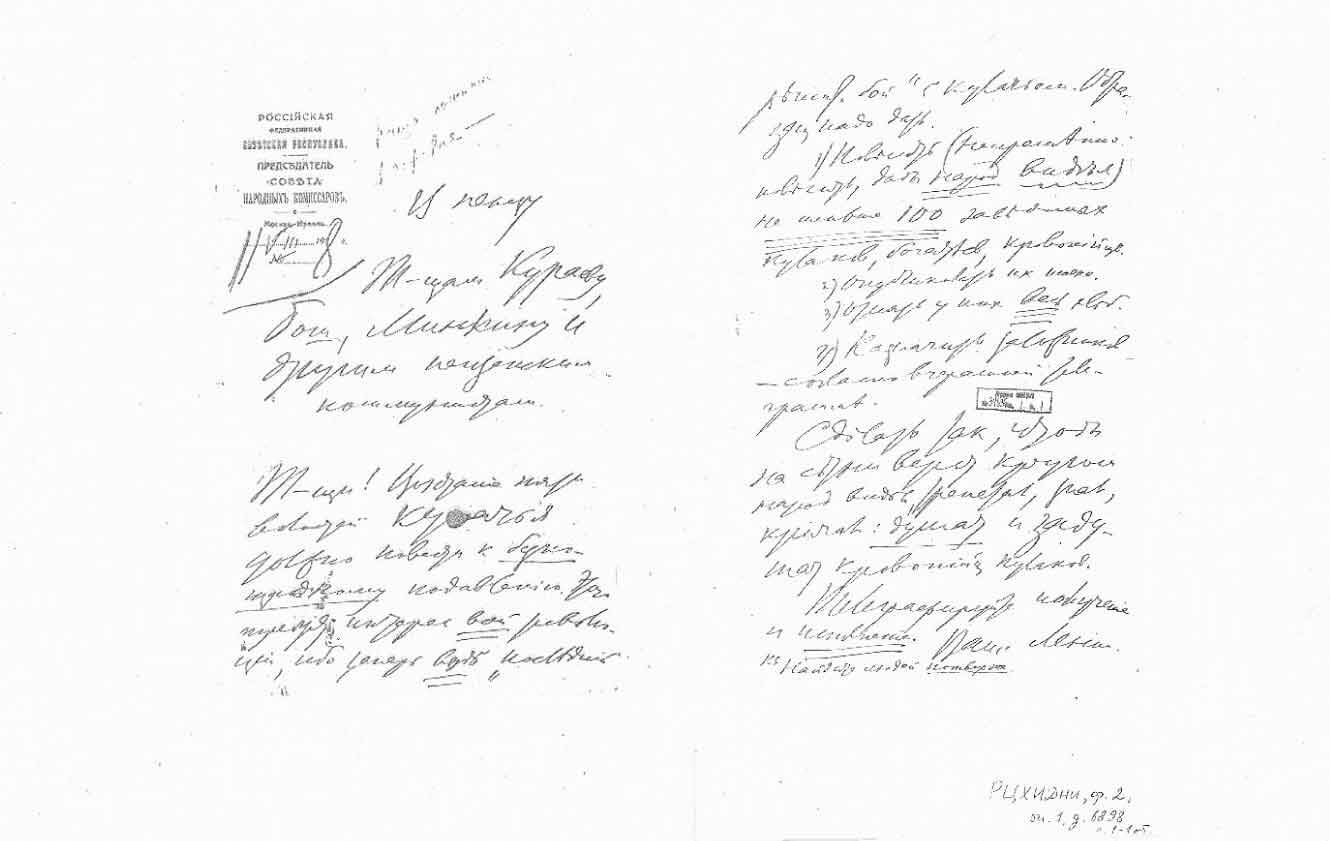 РОССІЙСКАЯ
ФЕДЕРАТИВНАЯ
СОВѢТСКАЯ РЕСПУБЛИКА.
ПРЕДСѢДАТЕЛЬ
СОВѢТА
НАРОДНЫХЪ КОМИССАРОВЪ.
Москва, Кремль.
11/VIII 1918 г.
№
В Пензу
Т-щам Кураеву,
Бош, Минкину и
другим пензенским
коммунистам.
Т-щи! Возстание пяти
волостей кулачья
должно повести к беспо-
щадному подавлению. Этого
требует интерес всей револю-
ции, ибо теперь везде „последний
решит. бой" с кулачьем. Обра-
зец надо дать.
1) Повесить (непременно
повесить, дабы народ видел)
не меньше 100 заведомых
кулаков, богатеев, кровопийцев.
2) Опубликовать их имена.
3) Отнять у них весь хлеб.
4) Назначить заложников
— согласно вчерашней теле-
грамме.
Сделать так, чтобы
на сотни верст кругом
народ видел, трепетал, знал,
кричал: душат и заду-
шат кровопийц кулаков.
Телеграфируйте получение
и исполнение. Ваш Ленин.
PS Найдите людей потверже
РЦХИДНИ, ф. 2,
оп. 1, д. 6898
л. 1-1об.